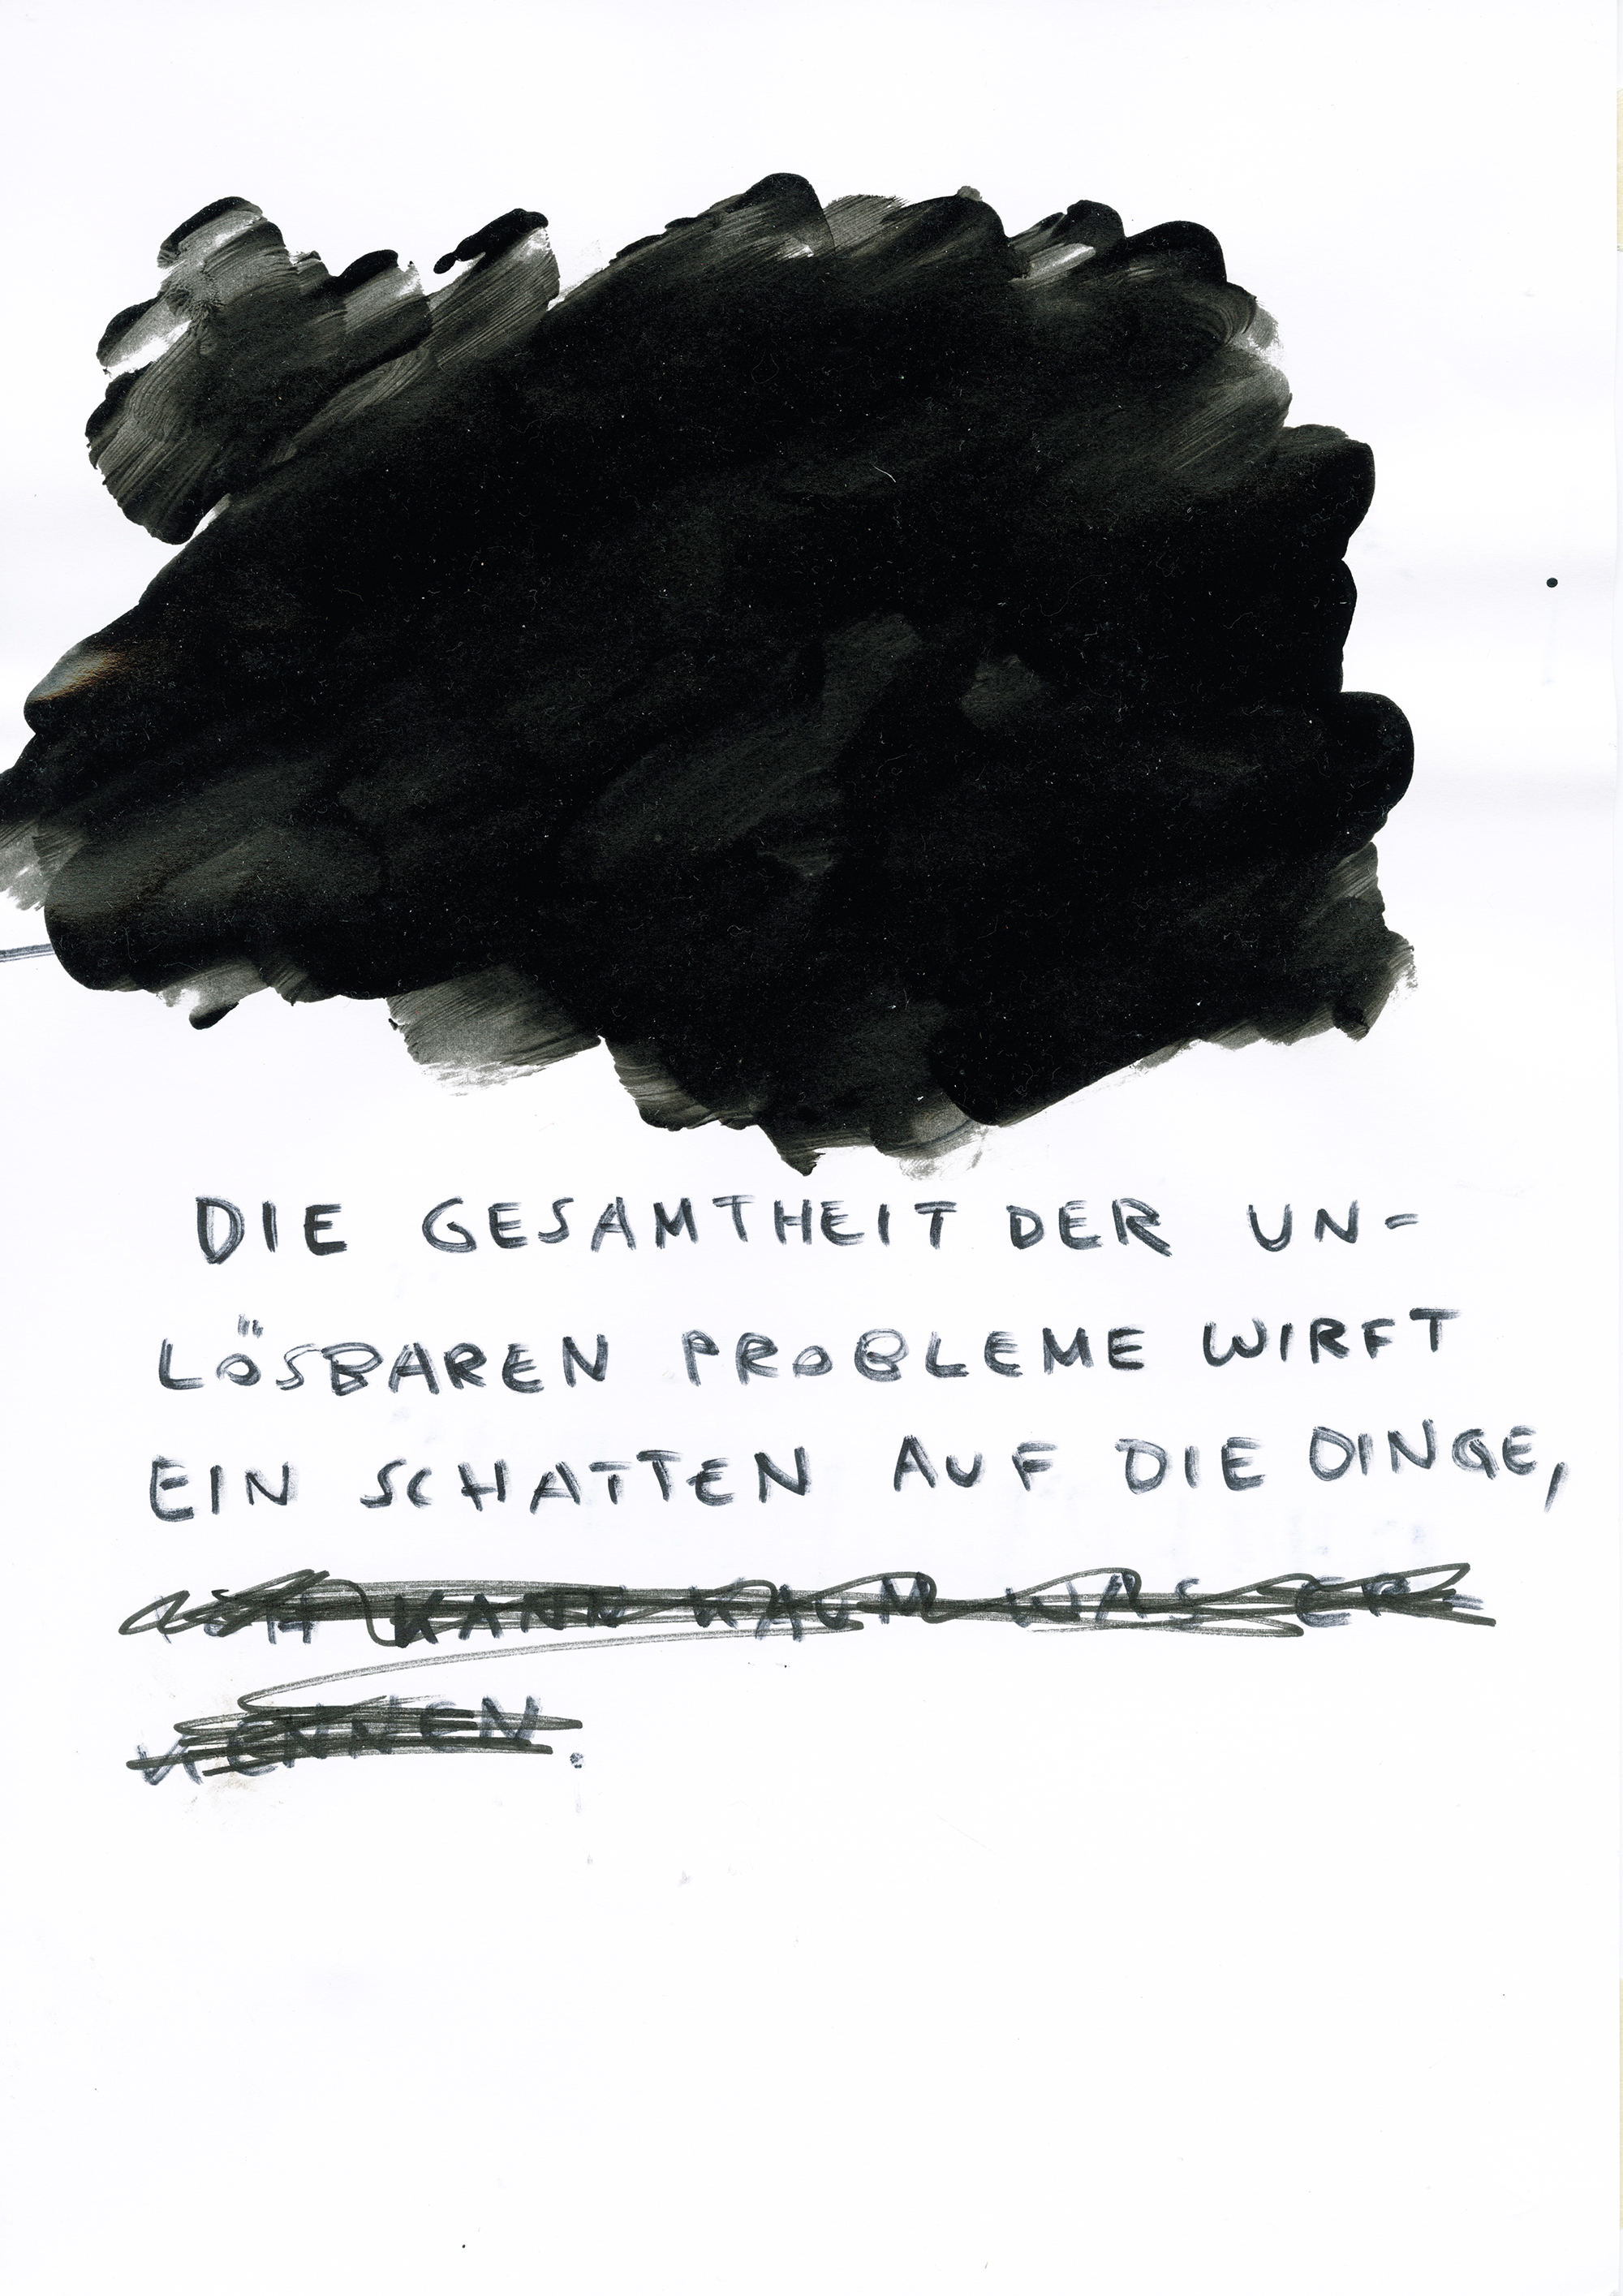 DIE GESAMTHEIT DER UN-
LÖSBAREN PROBLEME WIRFT
EIN SCHATTEN AUF DIE DINGE,
ICH KANN KAUM WAS ER
KENNEN.